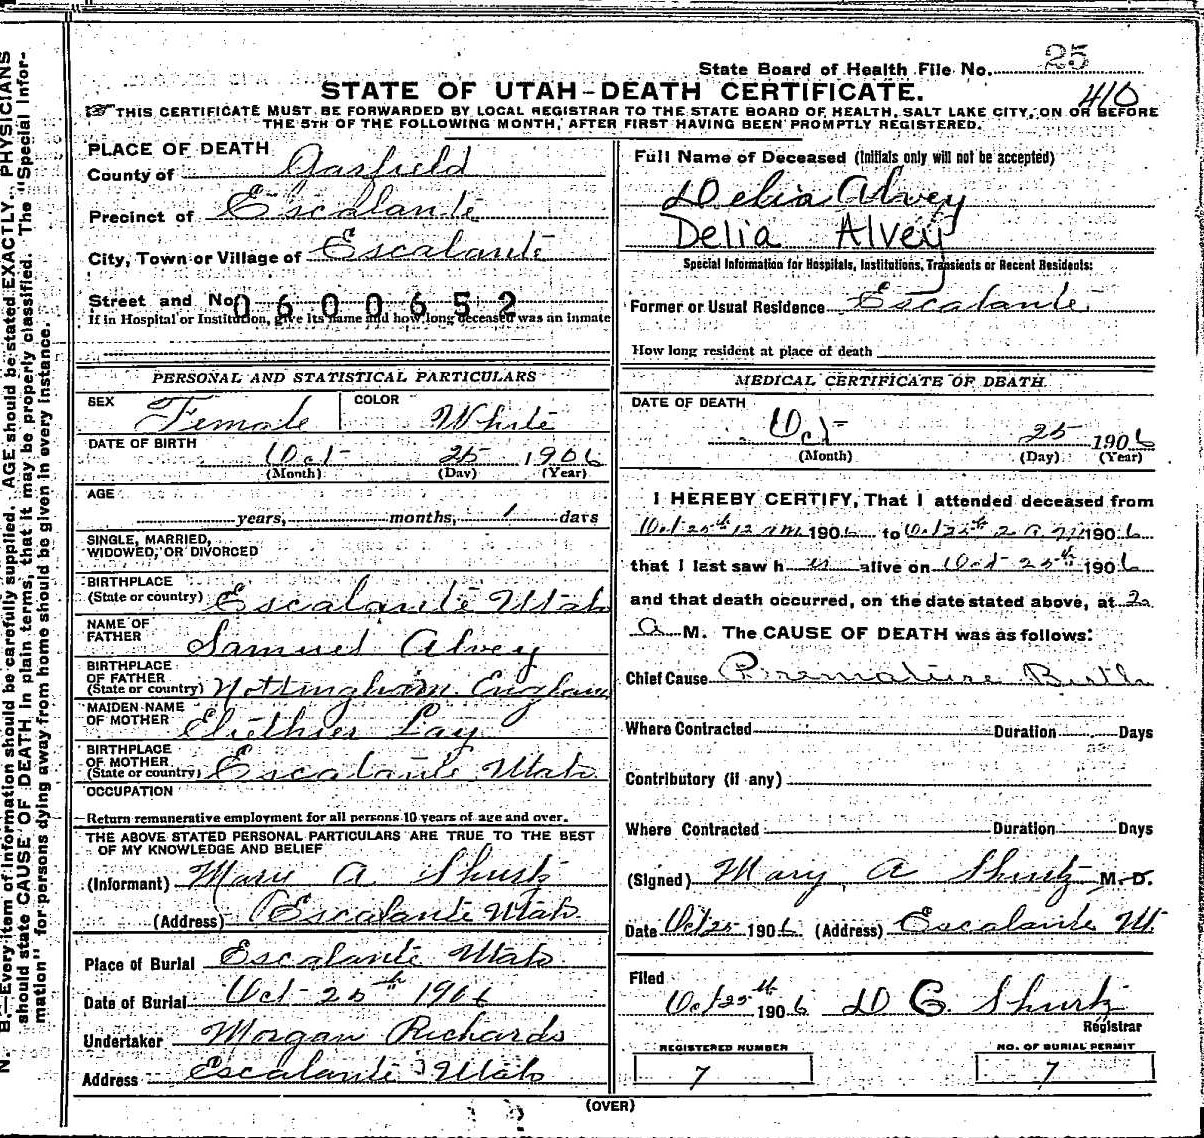 State Board of Health File No. 25
410
STATE OF UTAH-DEATH CERTIFICATE.
THIS CERTIFICATE MUST BE FORWARDED BY LOCAL REGISTRAR TO THE STATE BOARD OF HEALTH, SALT LAKE CITY, ON OR BEFORE
THE 5TH OF THE FOLLOWING MONTH, AFTER FIRST HAVING BEEN PROMPTLY REGISTERED.
PLACE OF DEATH
County of Garfield
Precinct of Escalante
City, Town or Village of Escalante
Street and No. 0600652
If in Hospital or Institution, give its name and how long deceased was an inmate
PERSONAL AND STATISTICAL PARTICULARS
SEX Female COLOR White
DATE OF BIRTH Oct 25 1906
(Month) (Day) (Year)
AGE
years, months, 1 days
SINGLE, MARRIED,
WIDOWED, OR DIVORCED
BIRTHPLACE
(State or country) Escalante Utah
NAME OF
FATHER Samuel Alvey
BIRTHPLACE
OF FATHER
(State or country) Nottingham England
MAIDEN NAME
OF MOTHER Lay
BIRTHPLACE
OF MOTHER
(State or country) Escalante Utah
OCCUPATION
Return remunerative employment for all persons 10 years of age and over.
THE ABOVE STATED PERSONAL PARTICULARS ARE TRUE TO THE BEST
OF MY KNOWLEDGE AND BELIEF
(Informant) Mary A Shurtz
(Address) Escalante Utah
Place of Burial Escalante Utah
Date of Burial Oct 25th 1906
Undertaker Morgan Richards
Address Escalante Utah
Full Name of Deceased (Initials only will not be accepted)
Delia Alvey
Delia Alvey
Special Information for Hospitals, Institutions, Transients or Recent Residents:
Former or Usual Residence Escalante
How long resident at place of death
MEDICAL CERTIFICATE OF DEATH.
DATE OF DEATH
Oct 25 1906
(Month) (Day) (Year)
I HEREBY CERTIFY, That I attended deceased from
Oct 25th 12 AM 1906 to Oct 25th 2 A M 1906
that I last saw her alive on Oct 25th 1906
and that death occurred, on the date stated above, at 2
A M. The CAUSE OF DEATH was as follows:
Chief Cause Premature Birth
Where Contracted Duration Days
Contributory (if any)
Where Contracted Duration Days
(Signed) Mary A Shurtz M.D.
Date Oct 25 1906 (Address) Escalante Ut.
Filed
Oct 25th 1906 D C. Shurtz
Registrar
REGISTERED NUMBER
7
NO. OF BURIAL PERMIT
7
(OVER)
N. B.—Every item of information should be carefully supplied. AGE should be stated EXACTLY. PHYSICIANS
should state CAUSE OF DEATH in plain terms, that it may be properly classified. The "Special Infor-
mation" for persons dying away from home should be given in every instance.